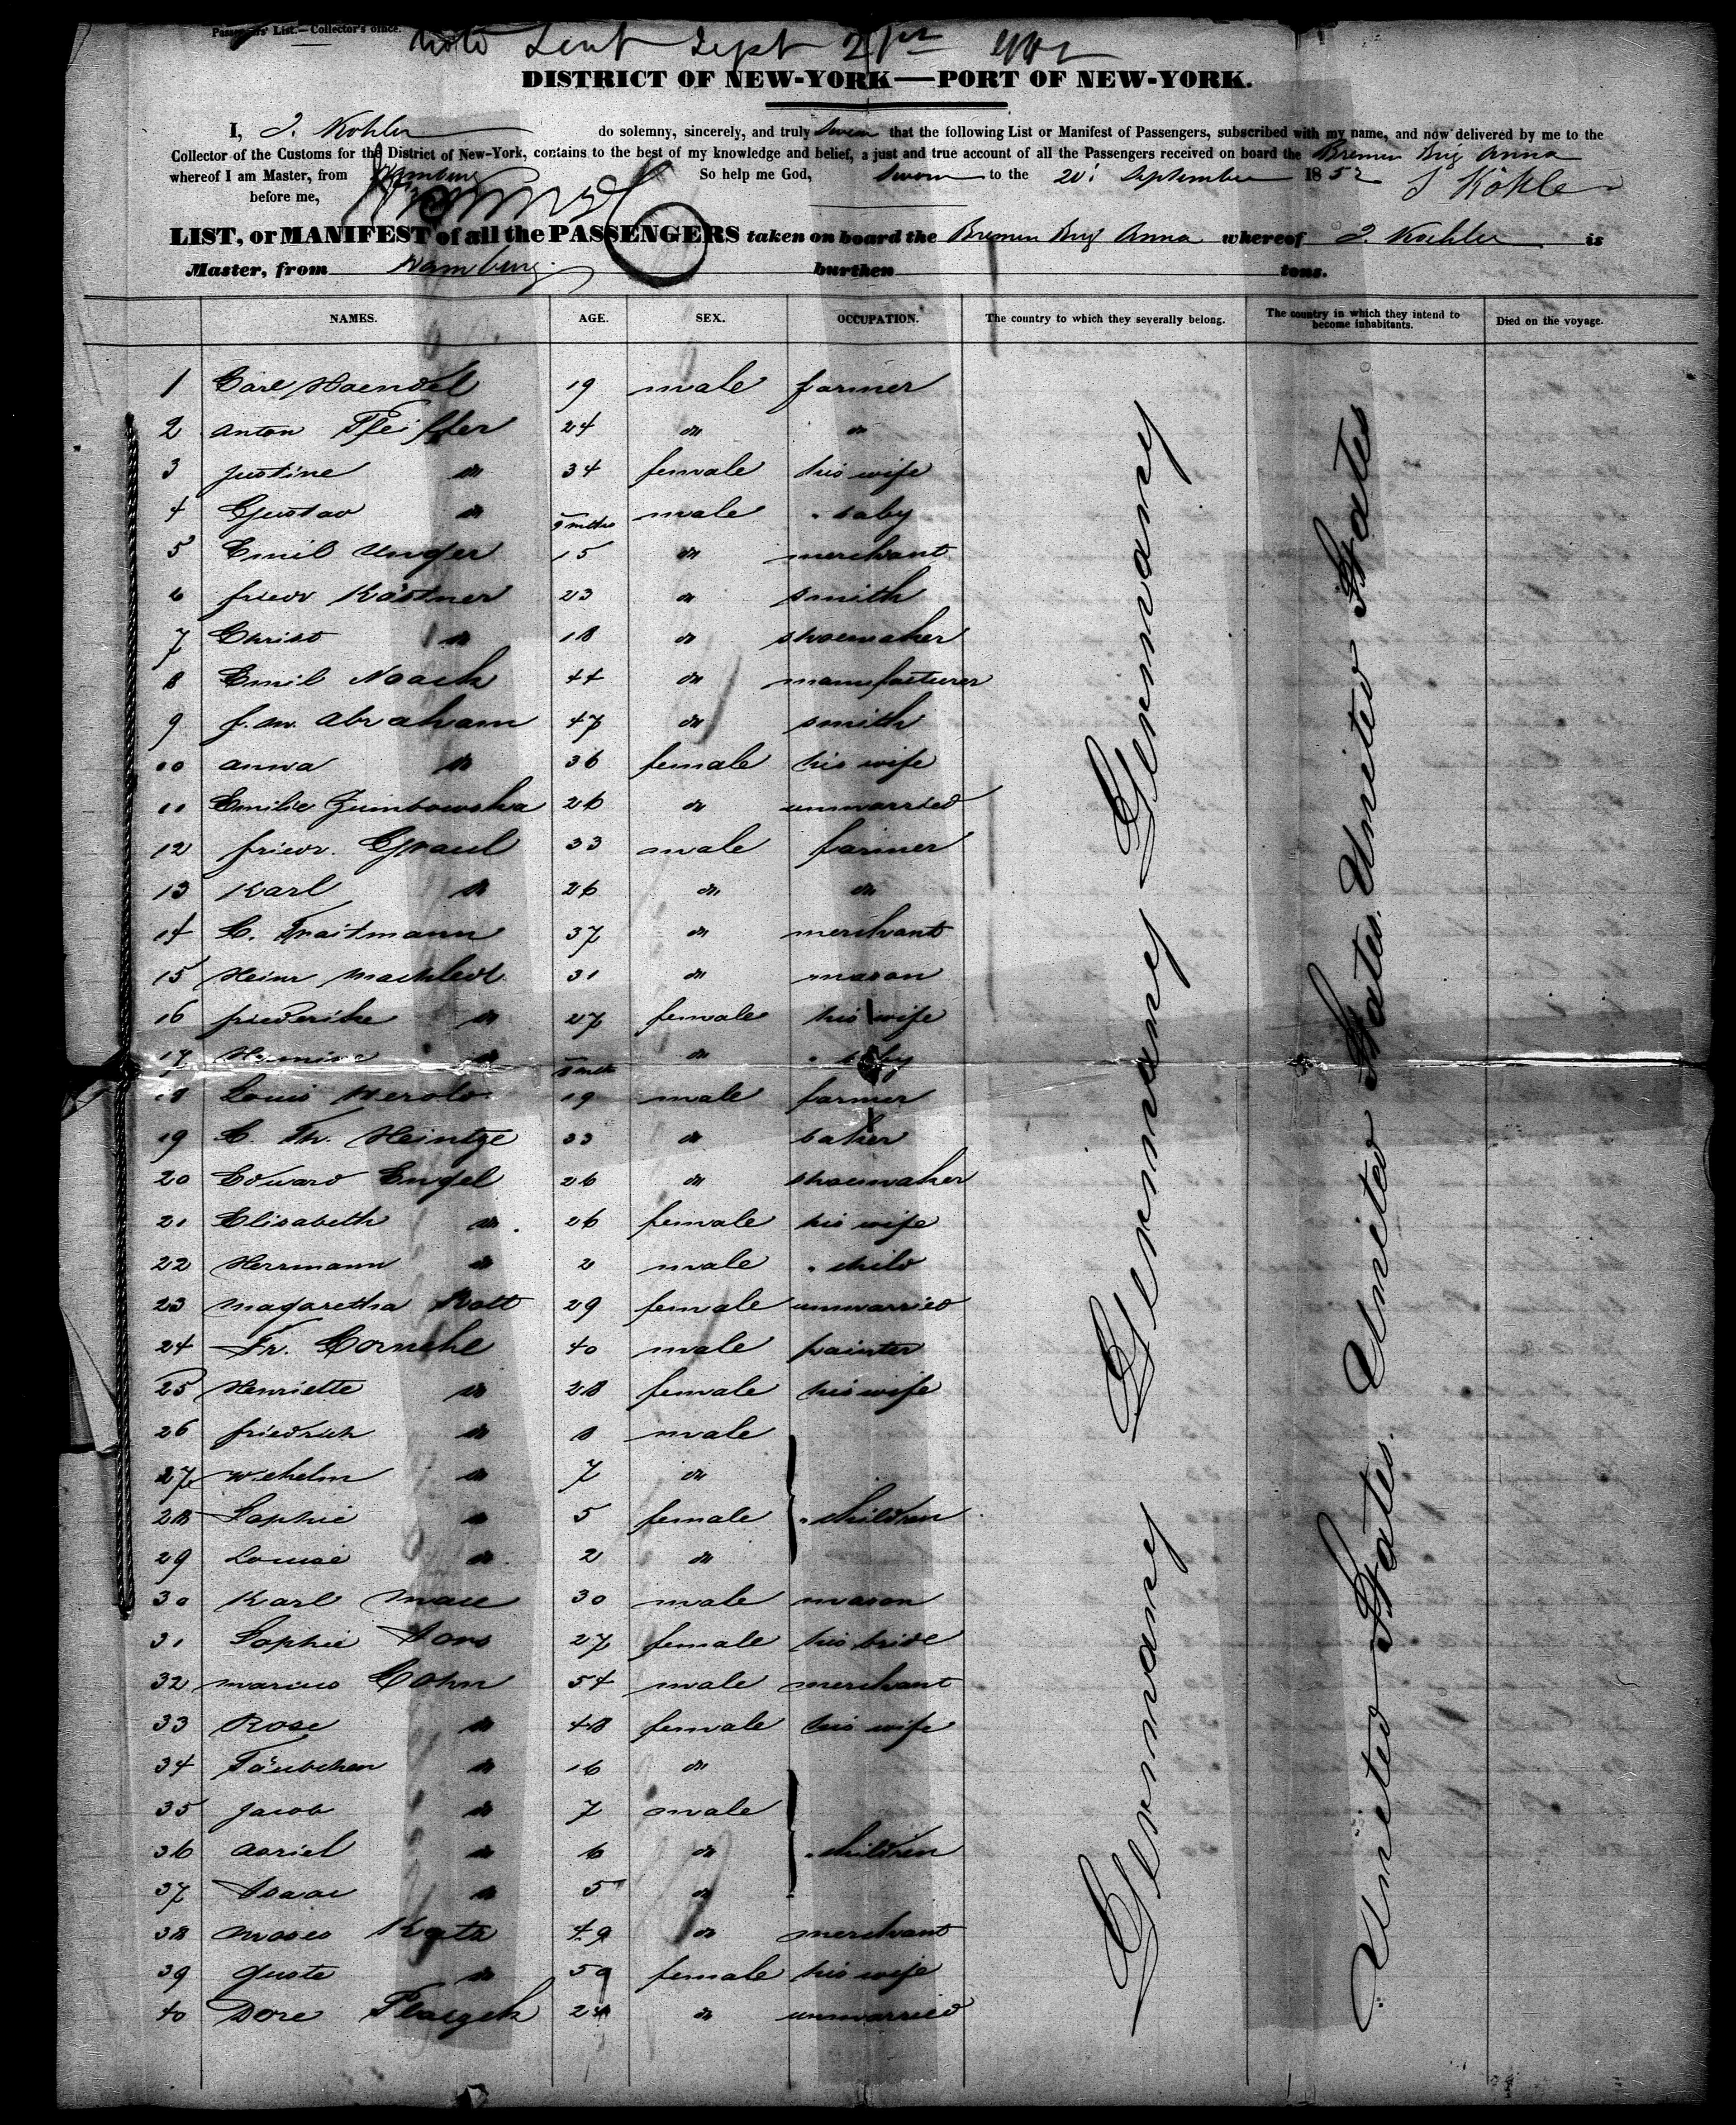 Passengers' List.—Collector's office.
Sept 21st
DISTRICT OF NEW-YORK—PORT OF NEW-YORK.
I, J. Kohler do solemny, sincerely, and truly swear that the following List or Manifest of Passengers, subscribed with my name, and now delivered by me to the
Collector of the Customs for the District of New-York, contains to the best of my knowledge and belief, a just and true account of all the Passengers received on board the Bremen Brig Anna
whereof I am Master, from Hamburg So help me God, Sworn to the 20. September 1852 J Köhler
before me,
LIST, or MANIFEST of all the PASSENGERS taken on board the Bremen Brig Anna whereof J. Koehler is
Master, from Hamburg burthen tons.
NAMES. AGE. SEX. OCCUPATION. The country to which they severally belong. The country in which they intend to become inhabitants. Died on the voyage.
1 Carl Haendel 19 male farmer
2 Anton Pfeiffer 24 do do
3 Justine do 34 female his wife
4 Gustav do 9 mths male " baby
5 Emil Unger 15 do merchant
6 friedr Kästner 23 do smith
7 Christ do 18 do shoemaker
8 Emil Noack 44 do manufacturer
9 f. W. Abraham 47 do smith
10 Anna do 36 female his wife
11 Emilie Zumbowska 26 do unmarried
12 friedr. Graul 33 male farmer
13 Karl do 26 do do
14 C. Traitmann 37 do merchant
15 Heinr Machledt 31 do mason
16 friederike do 27 female his wife
17 do 8 mths do " baby
18 Louis Herold 19 male farmer
19 C. Th. Heintze 33 do baker
20 Edward Engel 26 do shoemaker
21 Elisabeth do 26 female his wife
22 Herrmann do 2 male " child
23 Magaretha Kott 29 female unmarried
24 Fr. Cornehl 40 male painter
25 Henriette do 28 female his wife
26 friedrich do 8 male
27 Wilhelm do 7 do
28 Sophie do 5 female " children
29 Louise do 2 do
30 Karl 30 male mason
31 Sophie 27 female his bride
32 Marcus Cohn 54 male merchant
33 Rose do 48 female his wife
34 Täubchen do 16 do
35 Jacob do 7 male
36 Asriel do 6 do " children
37 Isaac do 5 do
38 Moses Katz 49 do merchant
39 Guste do 59 female his wife
40 Dore do unmarried
Germany Germany Germany Germany
United States United States. United States. United States